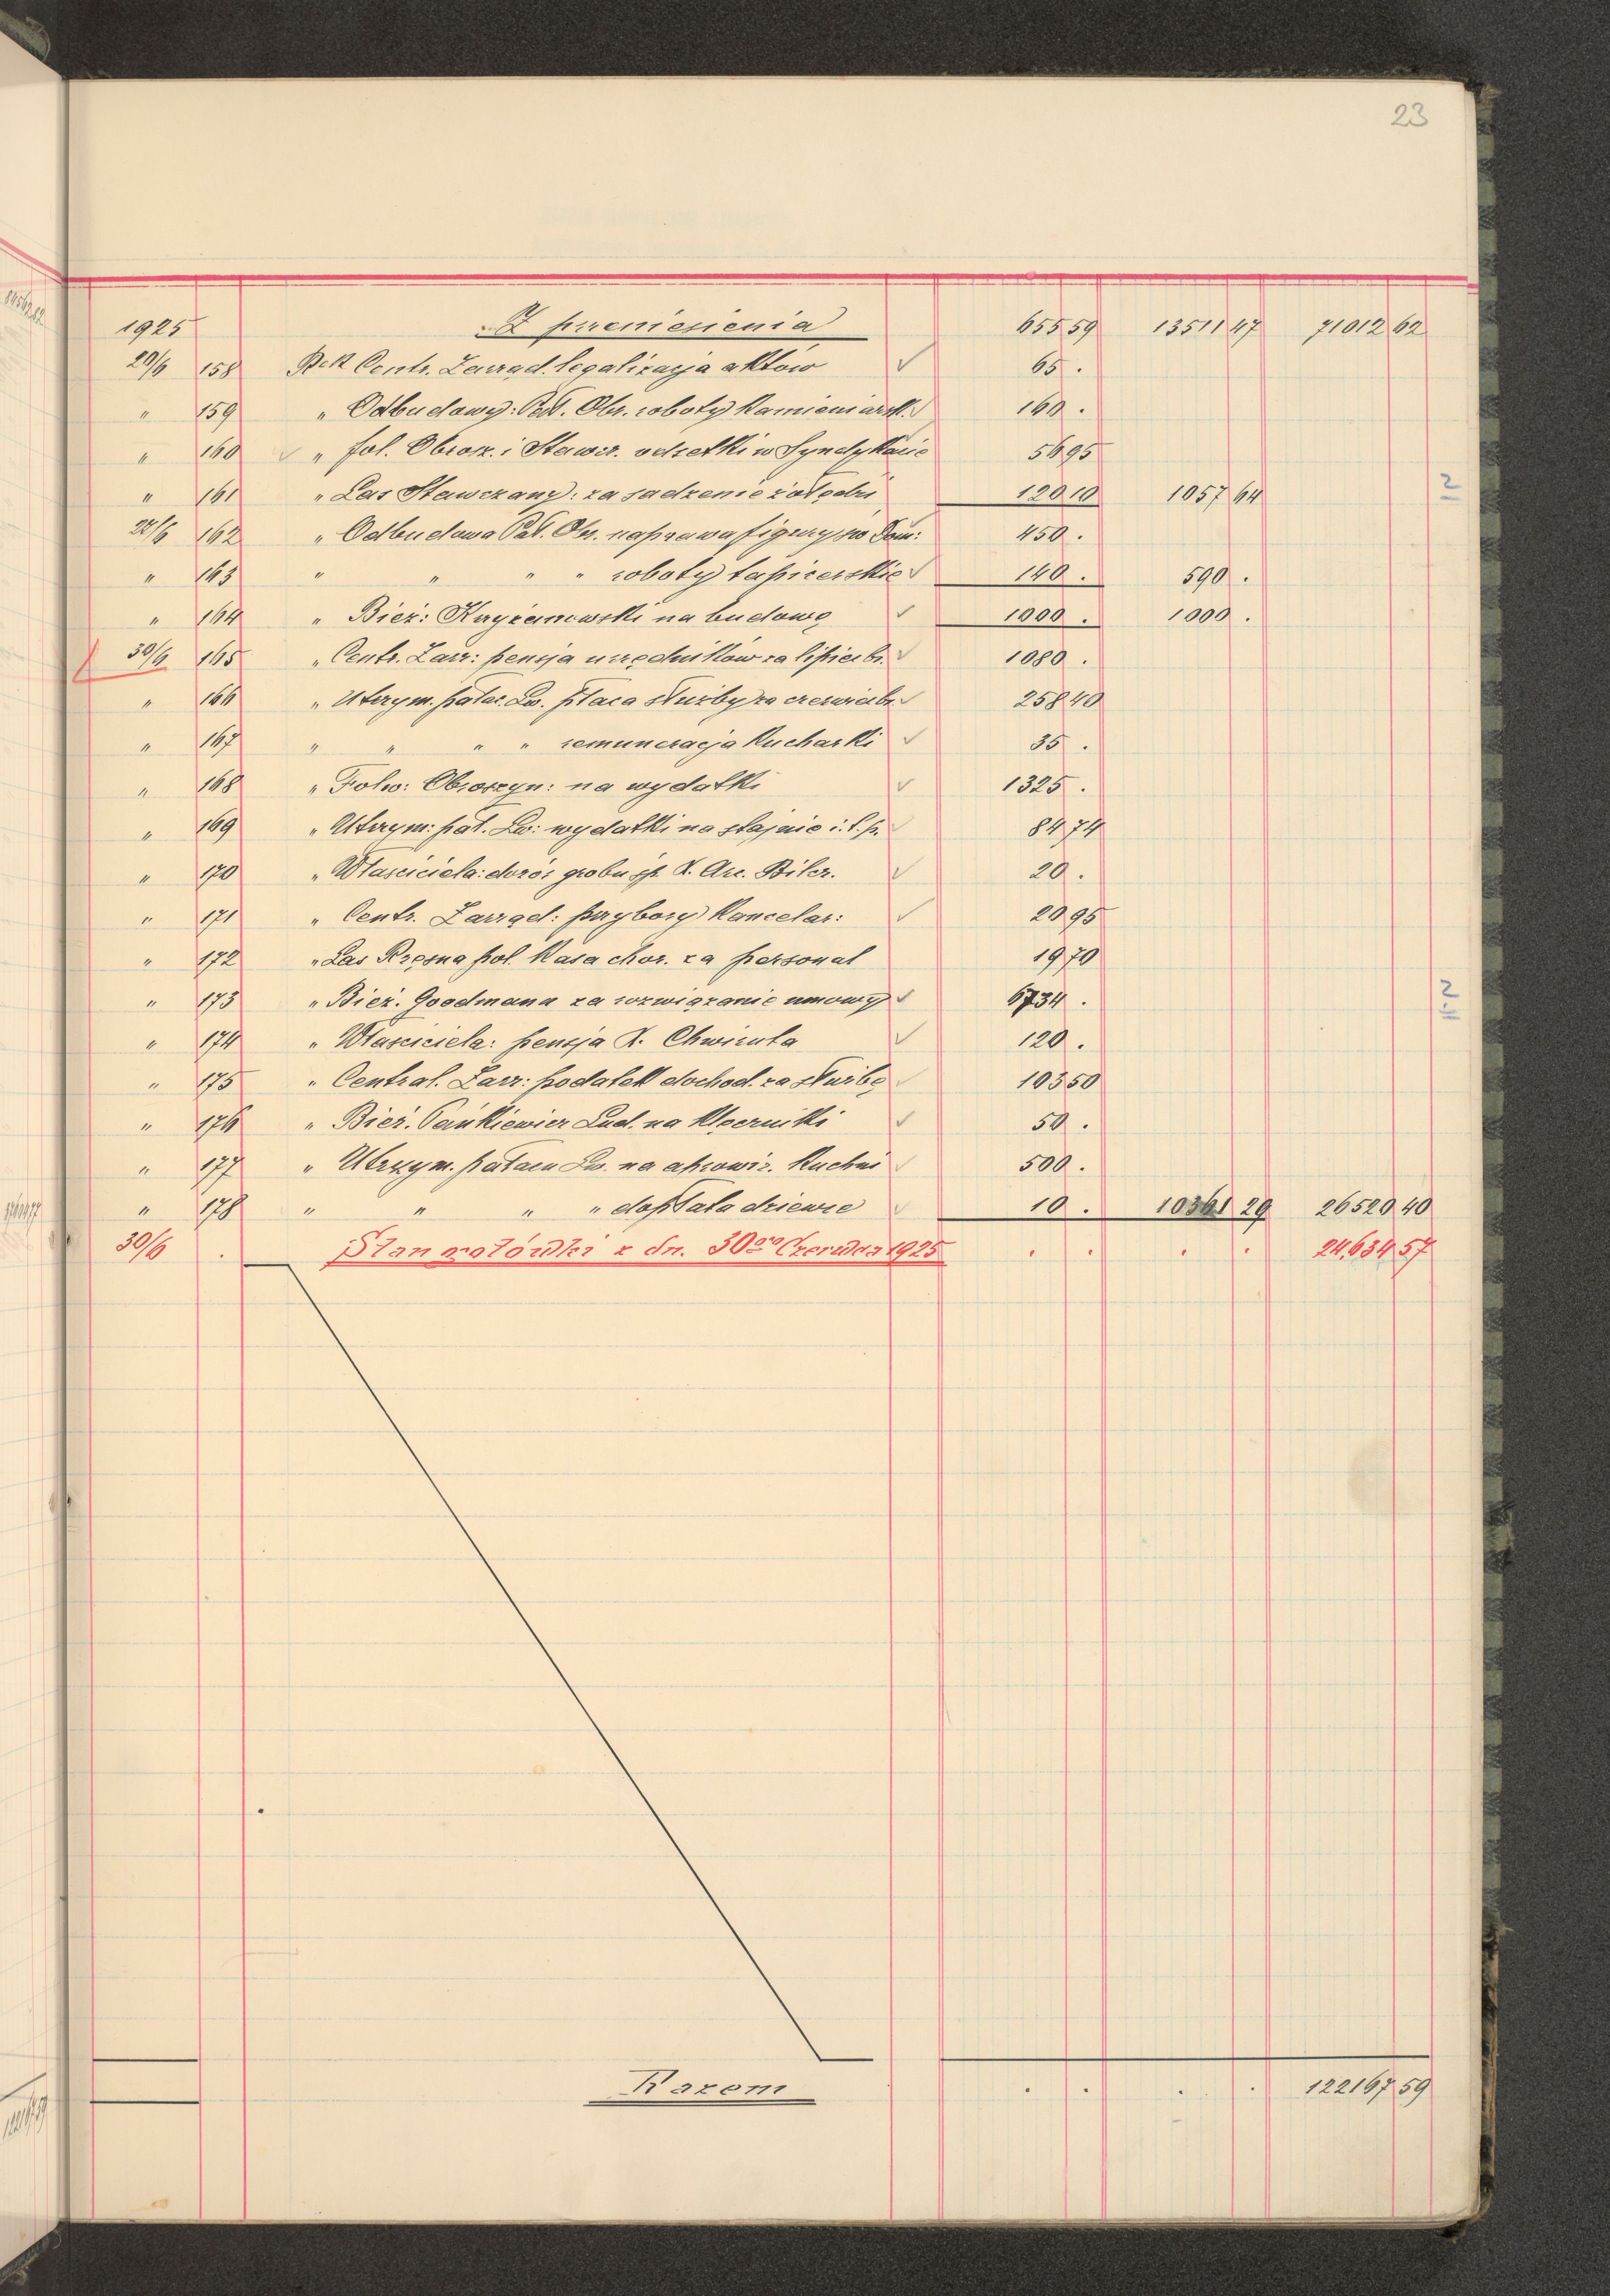 23
1925 Z przeniesienia 655 59 13511 47 71012 62
20/6 158 Rek Centr. Zarząd. legalizacja aktów 65 .
" 159 " Odbudowy: Pał. Obr. roboty kamieniarsk. 160 .
" 160 " fol. Obrosz. i Stawcz. odsetki w Syndykacie 56 95
" 161 " Las Stawczany: za sadzenie żołędzi 120 10 1057 64
162 " Odbudowa Pał. Obr. naprawa figury 450 .
" 163 " " " " roboty tapicerskie 140 . 590 .
" 164 " Bież: Krzyżanowski na budowę 1000 . 1000 .
30/6 165 " Centr. Zarz: pensja urzędników za lipiec br. 1080 .
" 166 " Utrzym. pałac. Lw. płaca służby za czerwiec br. 258 40
" 167 " " " " remuneracja kucharki 35 .
" 168 " Folw: Obroszyn: na wydatki 1325 .
" 169 " Utrzym: pał. Lw: wydatki na stajnie i. t. p. 84 74
" 170 " Własciciela: dozór grobu śp. X. Arc. Bilcz. 20 .
" 171 " Centr. Zarząd: przybory kancelar: 20 95
" 172 " Las Rzęsna pol. Kasa chor. za personal 19 70
" 173 " Bież. Goodmann za rozwiązanie umowy 6734 .
" 174 " Własciciela: pensja X. Chwiruta 120 .
" 175 " Central. Zarz: podatek dochod. za służbę 103 50
" 176 " Bież. Pańkiewicz Lud. na 50 .
" 177 " Utrzym. pałacu Lw. na aprowiz. kuchni 500 .
" 178 " " " " dopłata dziewce 10 . 10361 29 26520 40
30/6 . Stan gotówki z dn. 30go Czerwca 1925 . . . . 24,634 57
Razem . . . . 122167 59